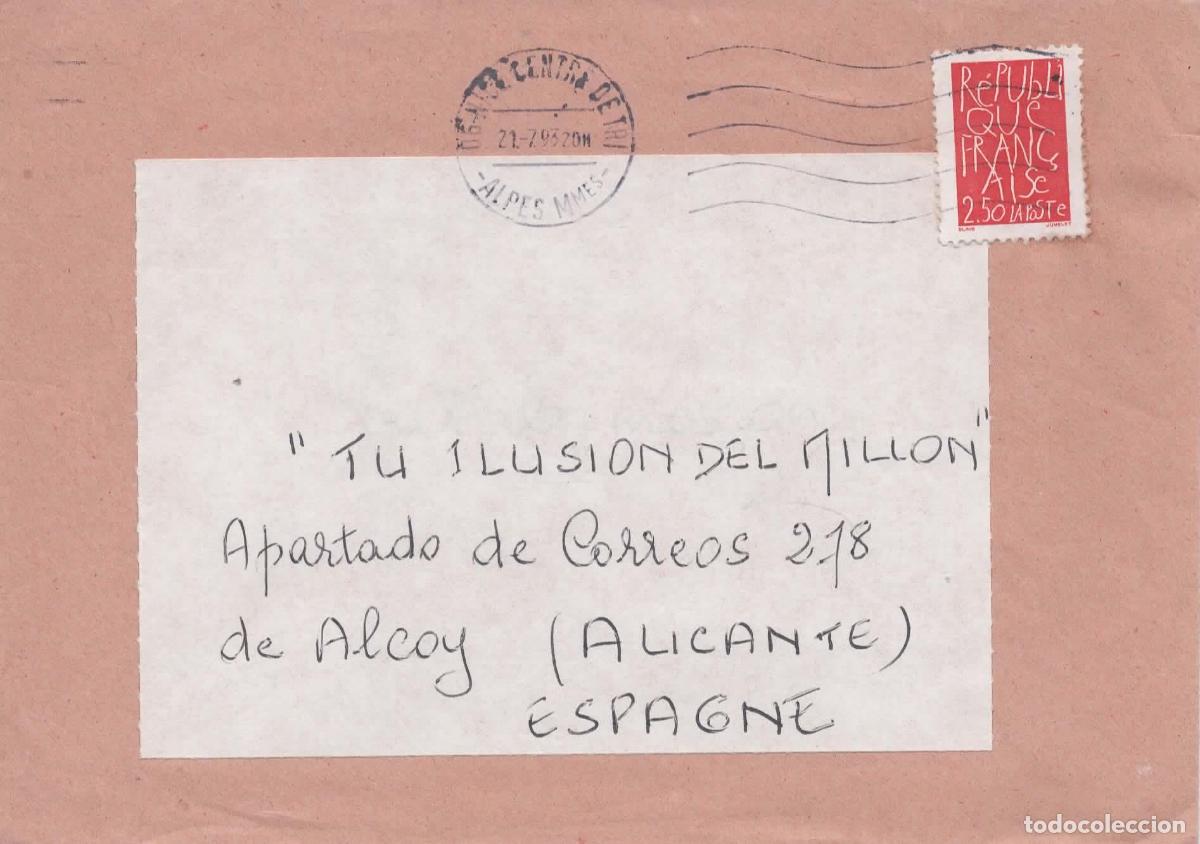 06-NICE CENTRE DE TRI
21-7.93 20H
-ALPES MMES-
RéPUbLI
QUe
FRANÇ
AISe
2.50 LA POSTe
BLAIS JUMELET
"TU ILUSION DEL MILLON"
Apartado de Correos 278
de Alcoy (ALICANTE)
ESPAGNE
todocoleccion